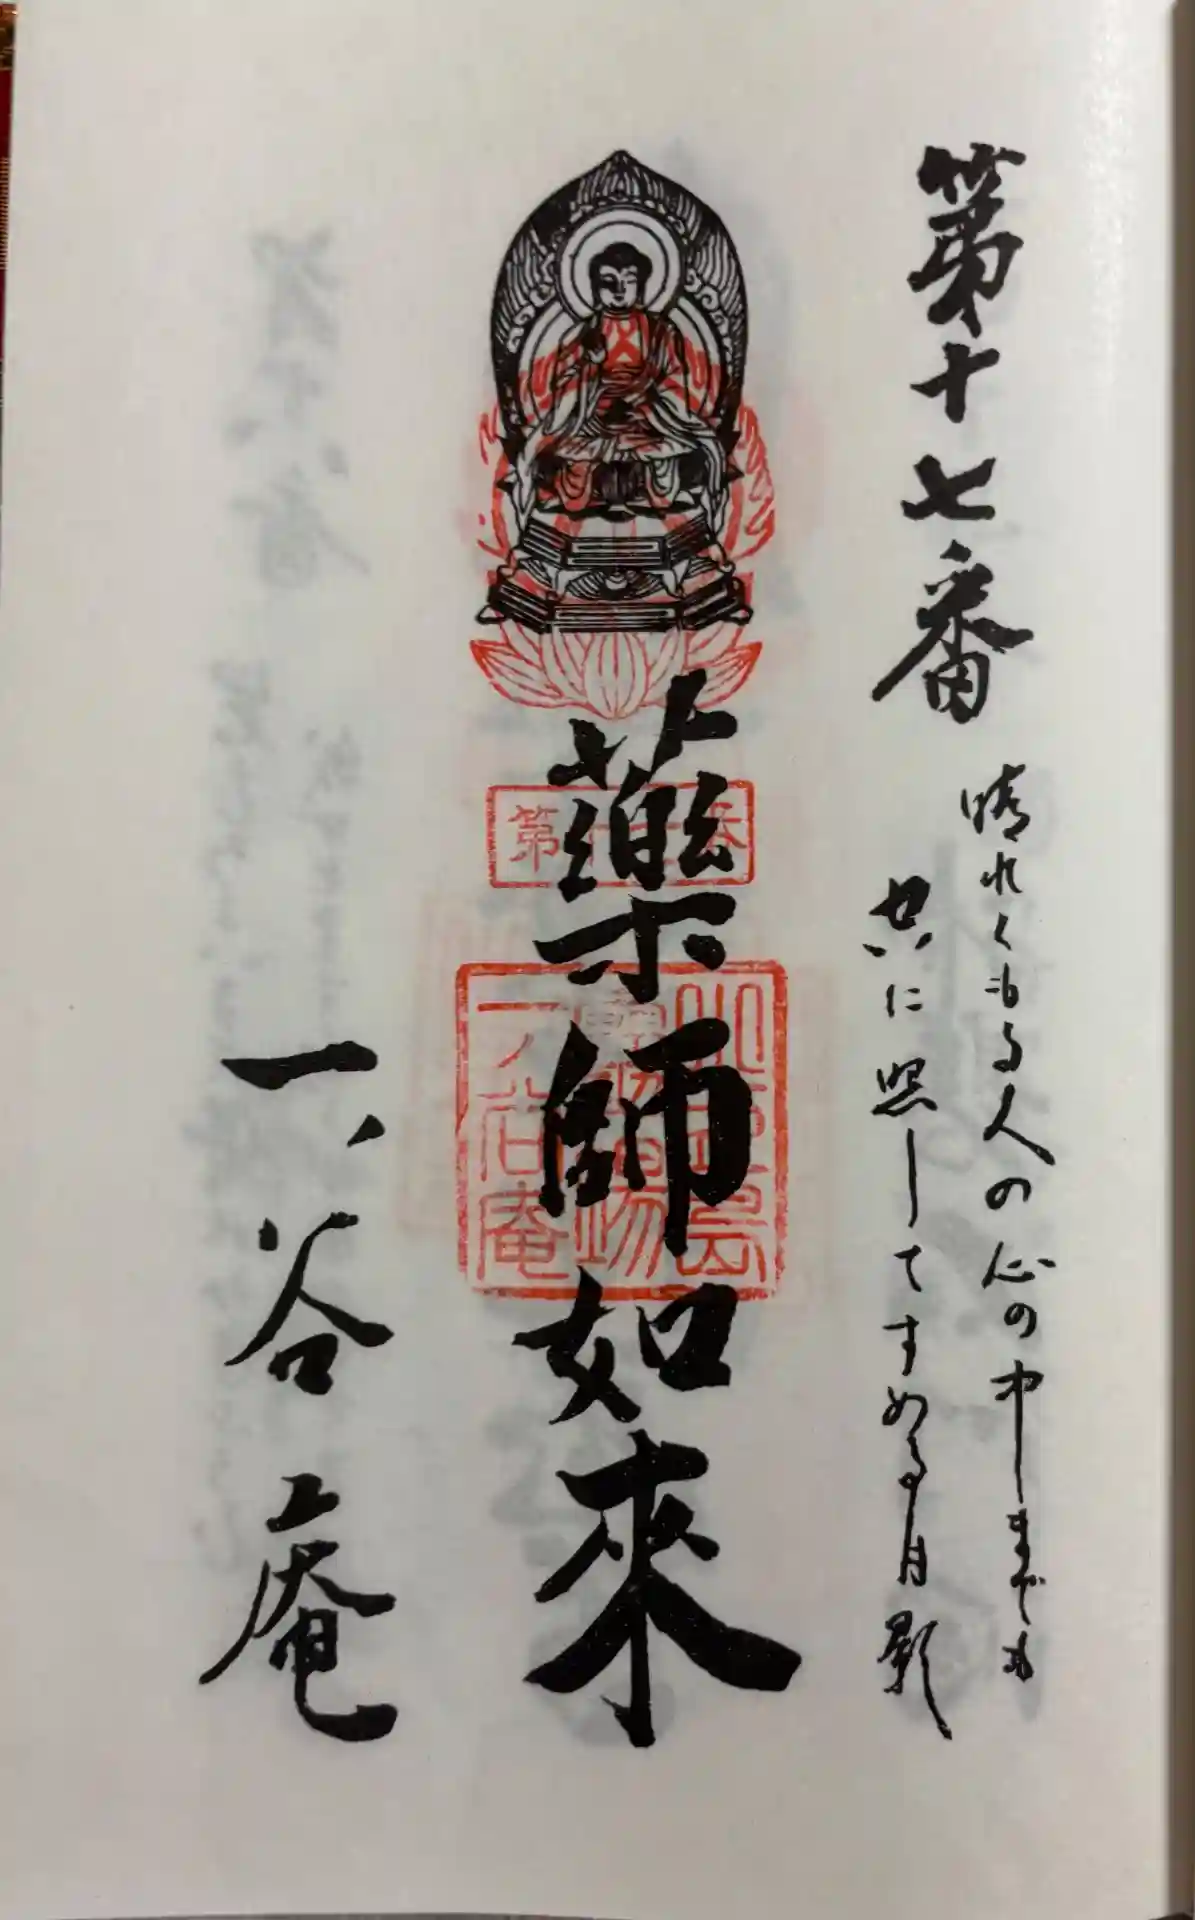 第十七番
晴れくもる人の心の中までも
共に照してすめる月影
第十七番
薬師如来
小豆島
一ノ谷庵
一ノ谷庵